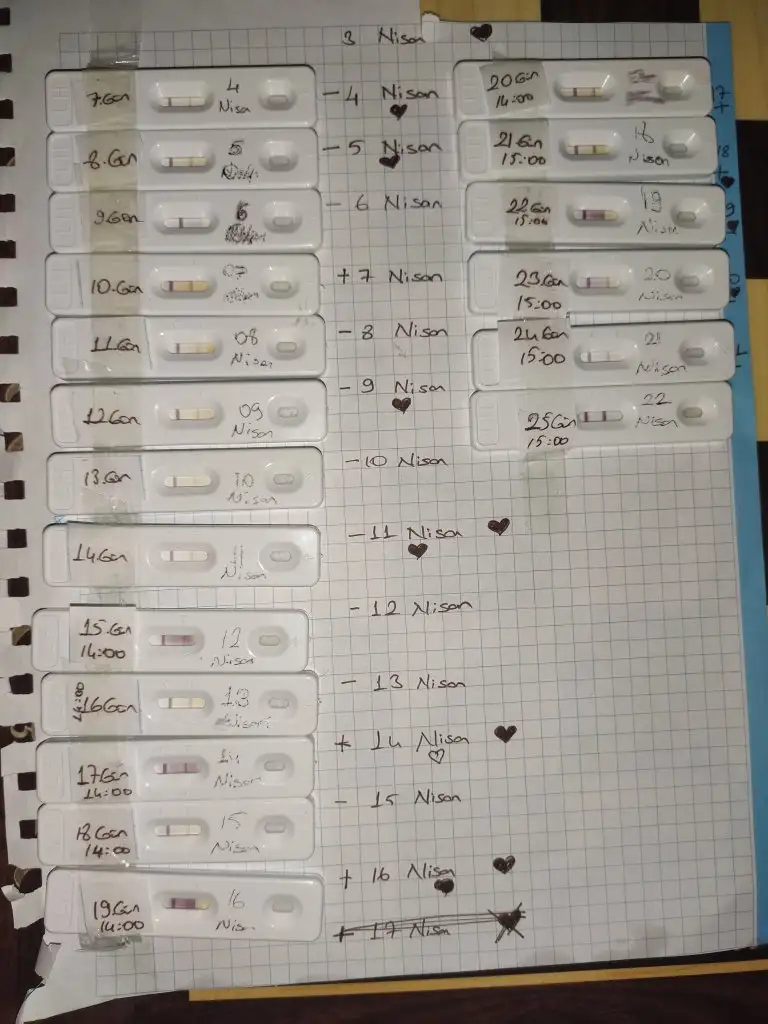 3 Nisan
7.Gün 4 Nisan
- 4 Nisan
8.Gün 5
- 5 Nisan
9.Gün 6
- 6 Nisan
10.Gün 07
+ 7 Nisan
11.Gün 08 Nisan
- 8 Nisan
12.Gün 09 Nisan
- 9 Nisan
13.Gün 10 Nisan
- 10 Nisan
14.Gün 11 Nisan
- 11 Nisan
15.Gün 14:00 12 Nisan
- 12 Nisan
16Gün 14:00 13 Nisan
- 13 Nisan
17Gün 14:00 14 Nisan
+ 14 Nisan
18Gün 14:00 15 Nisan
- 15 Nisan
19Gün 14:00 16 Nisan
+ 16 Nisan
+ 17 Nisan
20Gün 14:00
17
+
21Gün 15:00 18 Nisan
18
+
22Gün 15:00 19 Nisan
9
23Gün 15:00 20 Nisan
0
24Gün 15:00 21 Nisan
25Gün 15:00 22 Nisan